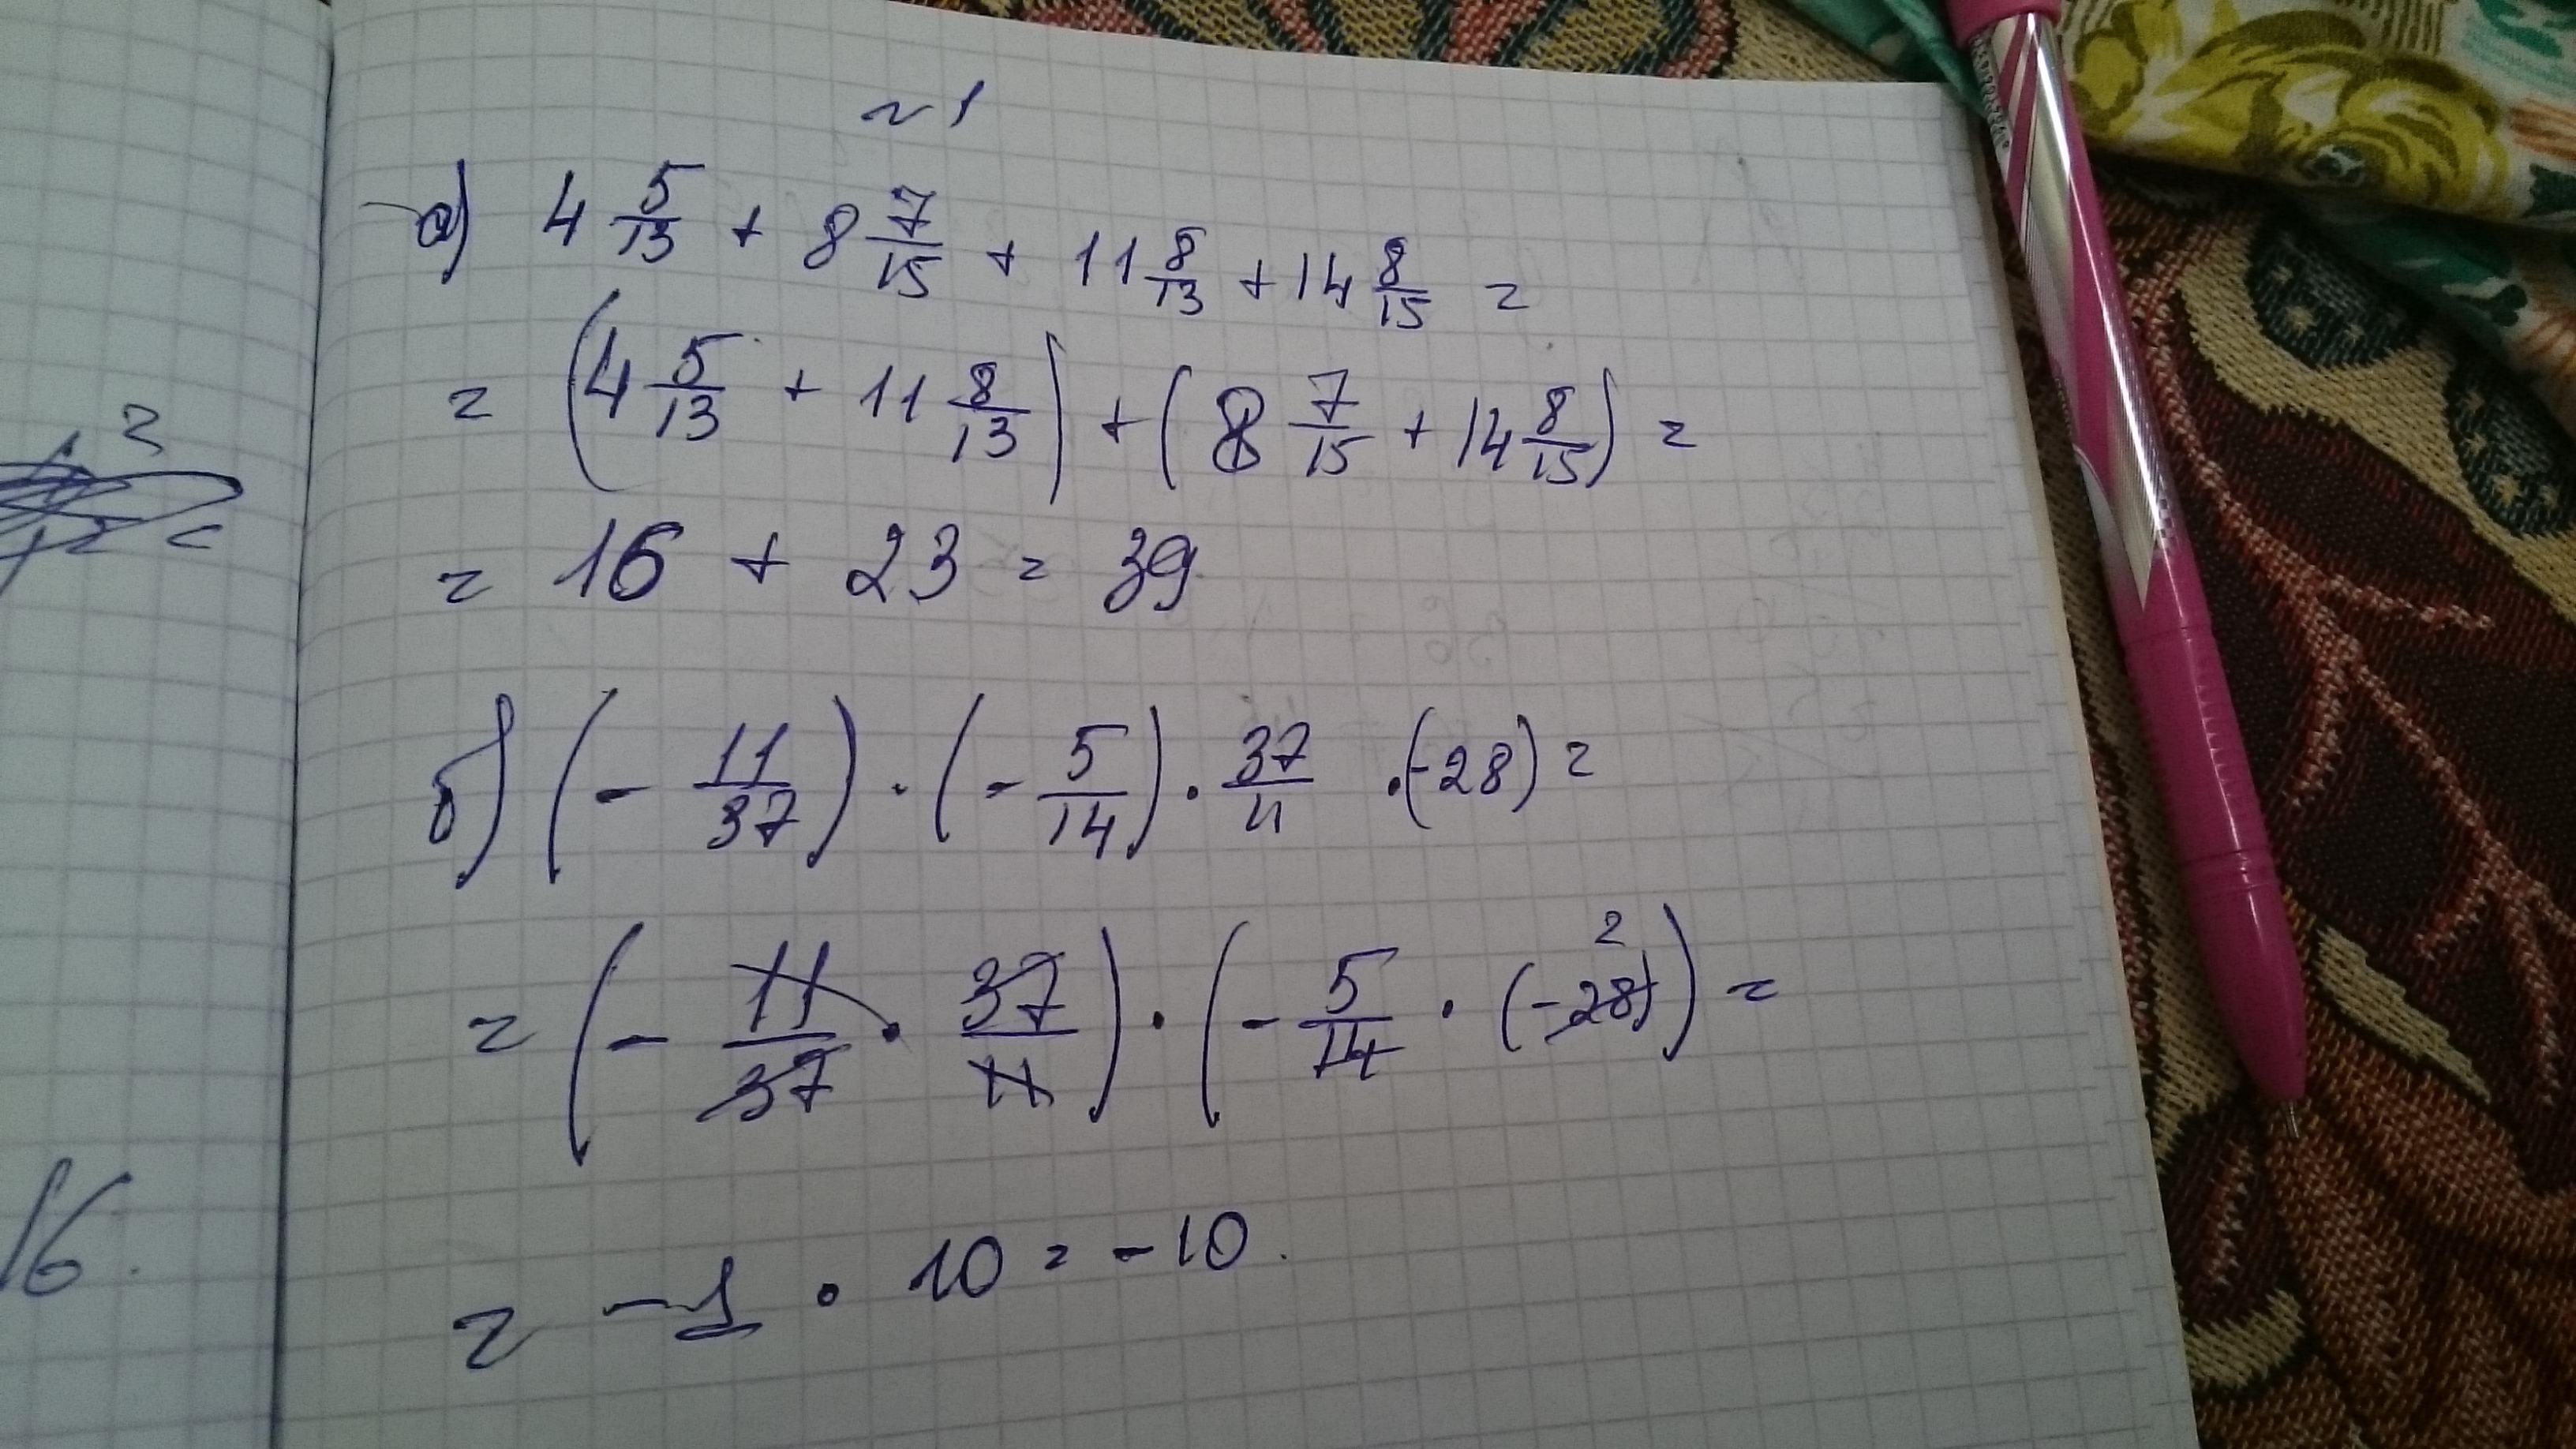 ~ 1
а) 4 5/13 + 8 7/15 + 11 8/13 + 14 8/15 =
= (4 5/13 + 11 8/13) + (8 7/15 + 14 8/15) =
= 16 + 23 = 39
б) (- 11/37) · (- 5/14) · 37/11 · (-28) =
= (- 11/37 · 37/11) · (- 5/14 · (-28) 2) =
= -1 · 10 = -10.
2
16.